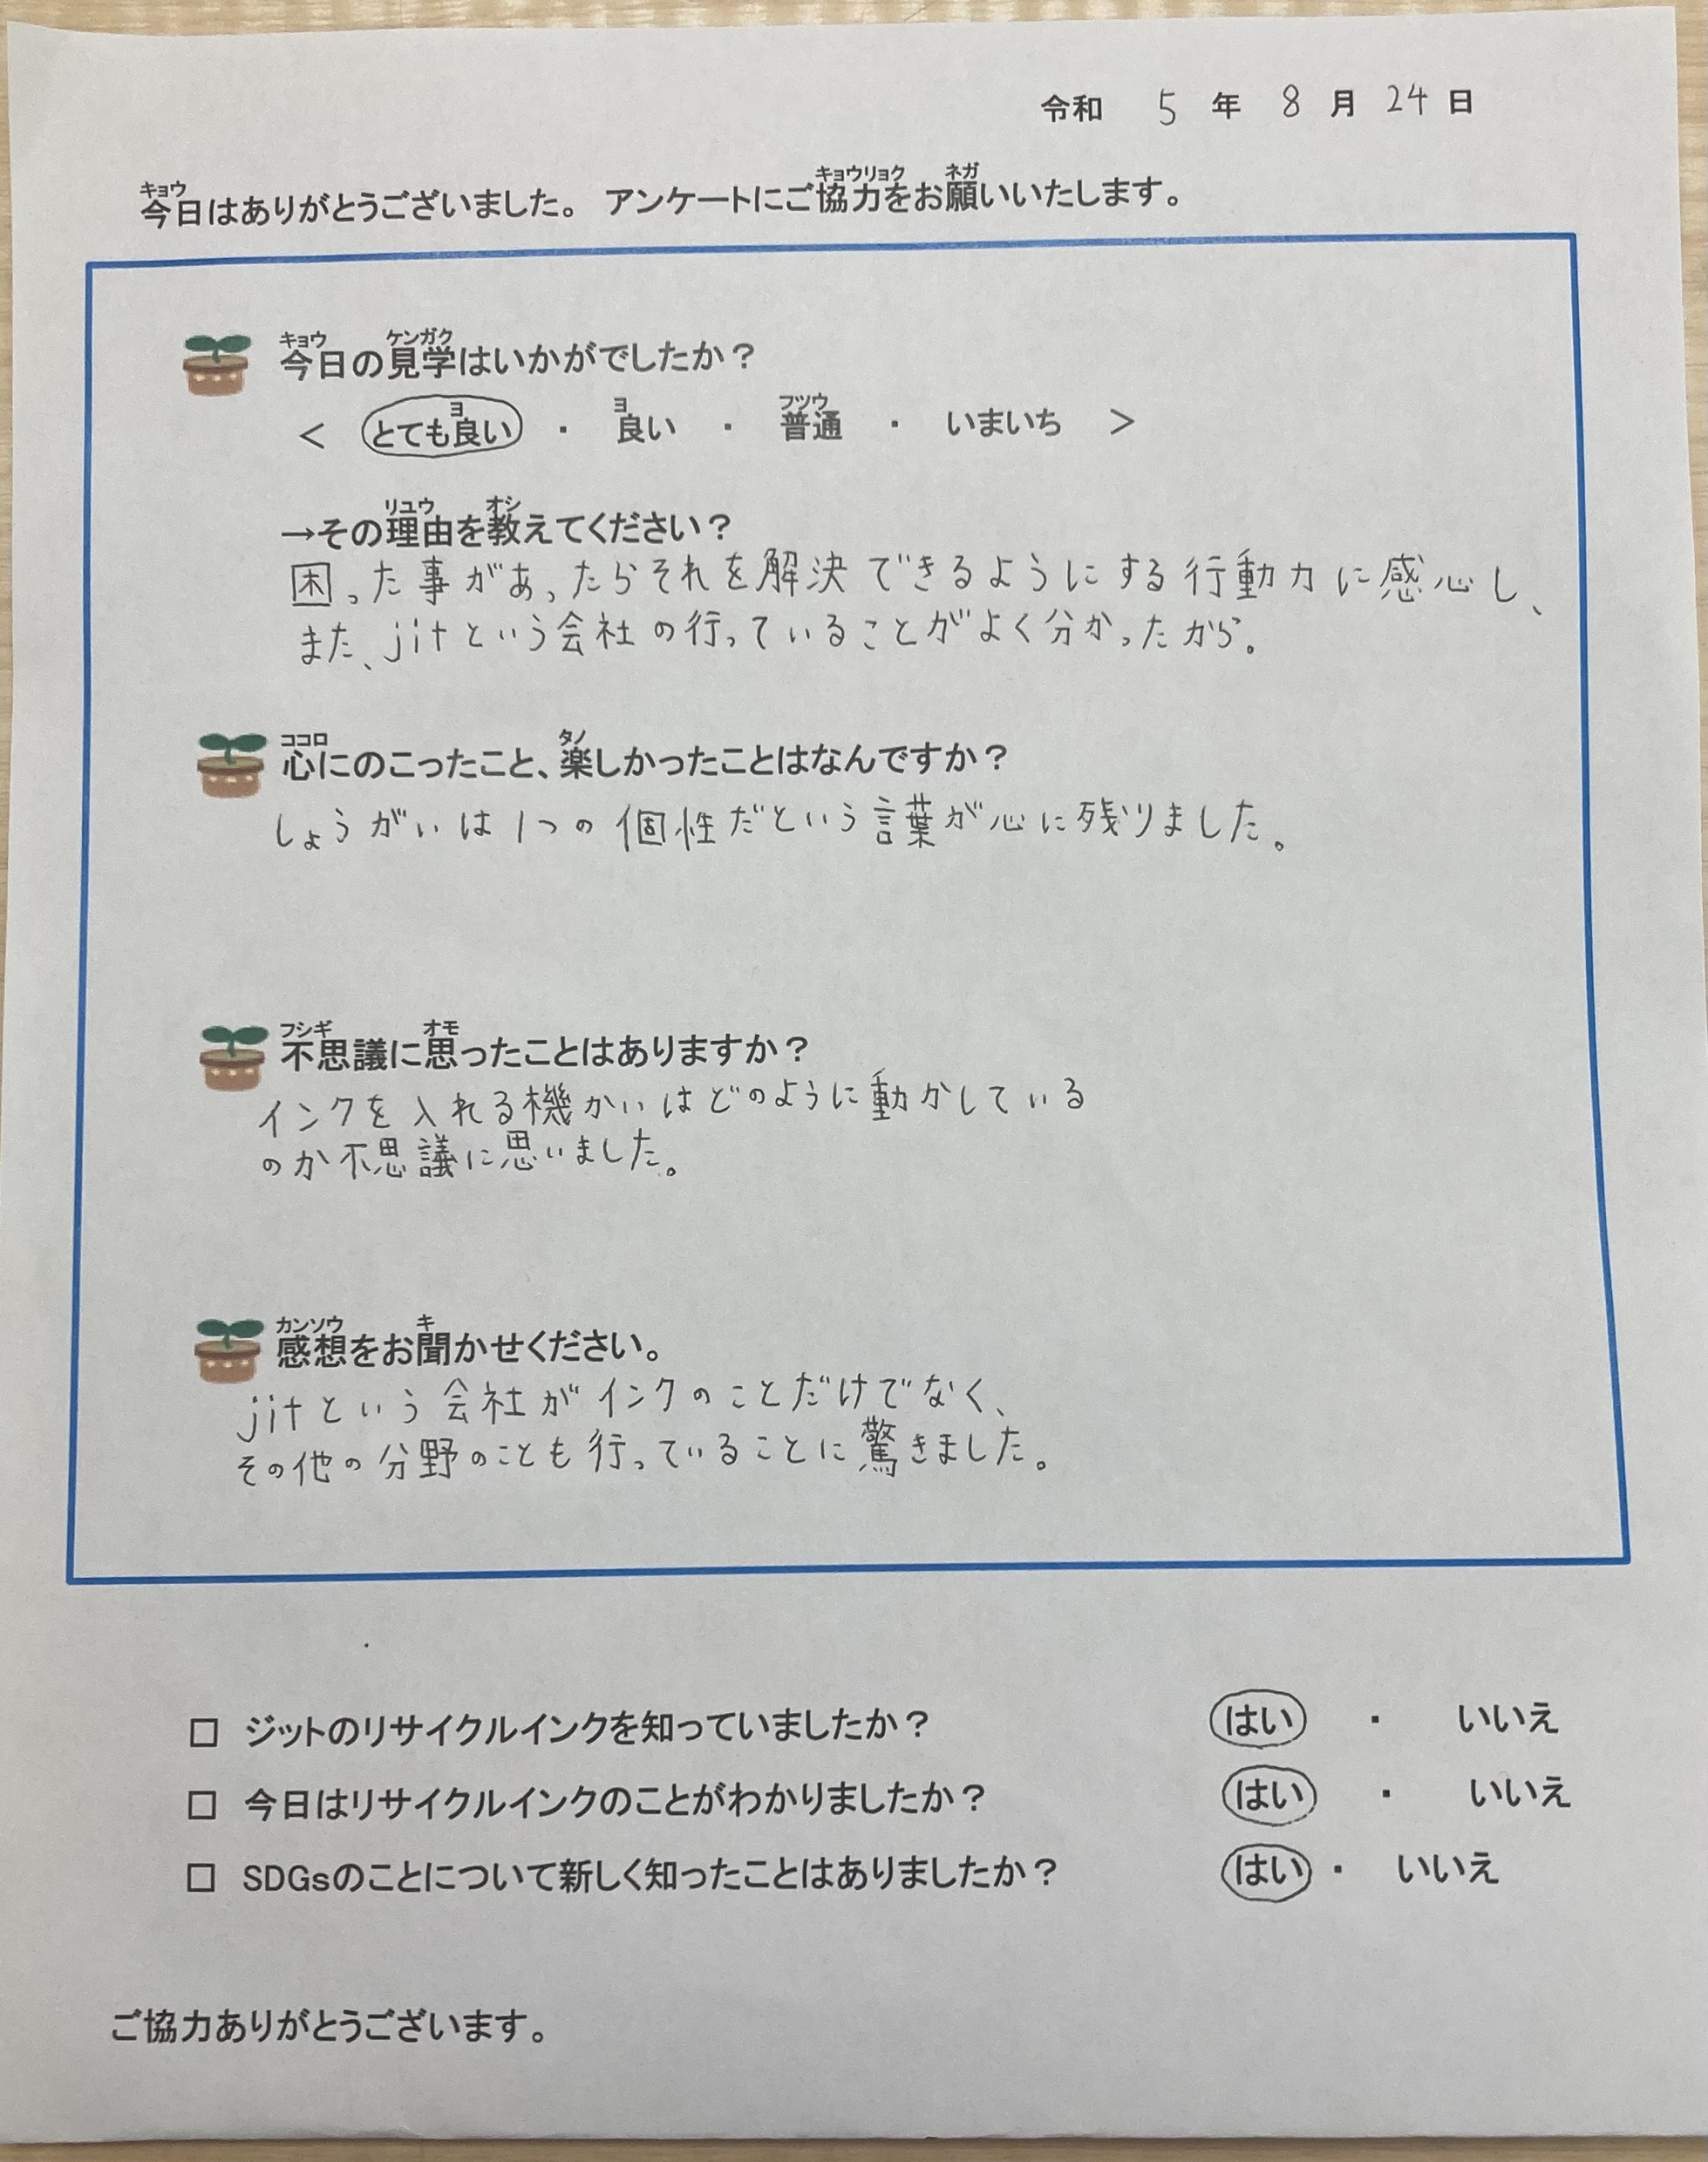 令和 5 年 8 月 24 日
今日はありがとうございました。 アンケートにご協力をお願いいたします。
今日の見学はいかがでしたか？
＜ とても良い ・ 良い ・ 普通 ・ いまいち ＞
→その理由を教えてください？
困った事があったらそれを解決できるようにする行動力に感心し、
また、jitという会社の行っていることがよく分かったから。
心にのこったこと、楽しかったことはなんですか？
しょうがいは1つの個性だという言葉が心に残りました。
不思議に思ったことはありますか？
インクを入れる機かいはどのように動かしている
のか不思議に思いました。
感想をお聞かせください。
jitという会社がインクのことだけでなく、
その他の分野のことも行っていることに驚きました。
□ ジットのリサイクルインクを知っていましたか？ はい ・ いいえ
□ 今日はリサイクルインクのことがわかりましたか？ はい ・ いいえ
□ SDGsのことについて新しく知ったことはありましたか？ はい ・ いいえ
ご協力ありがとうございます。